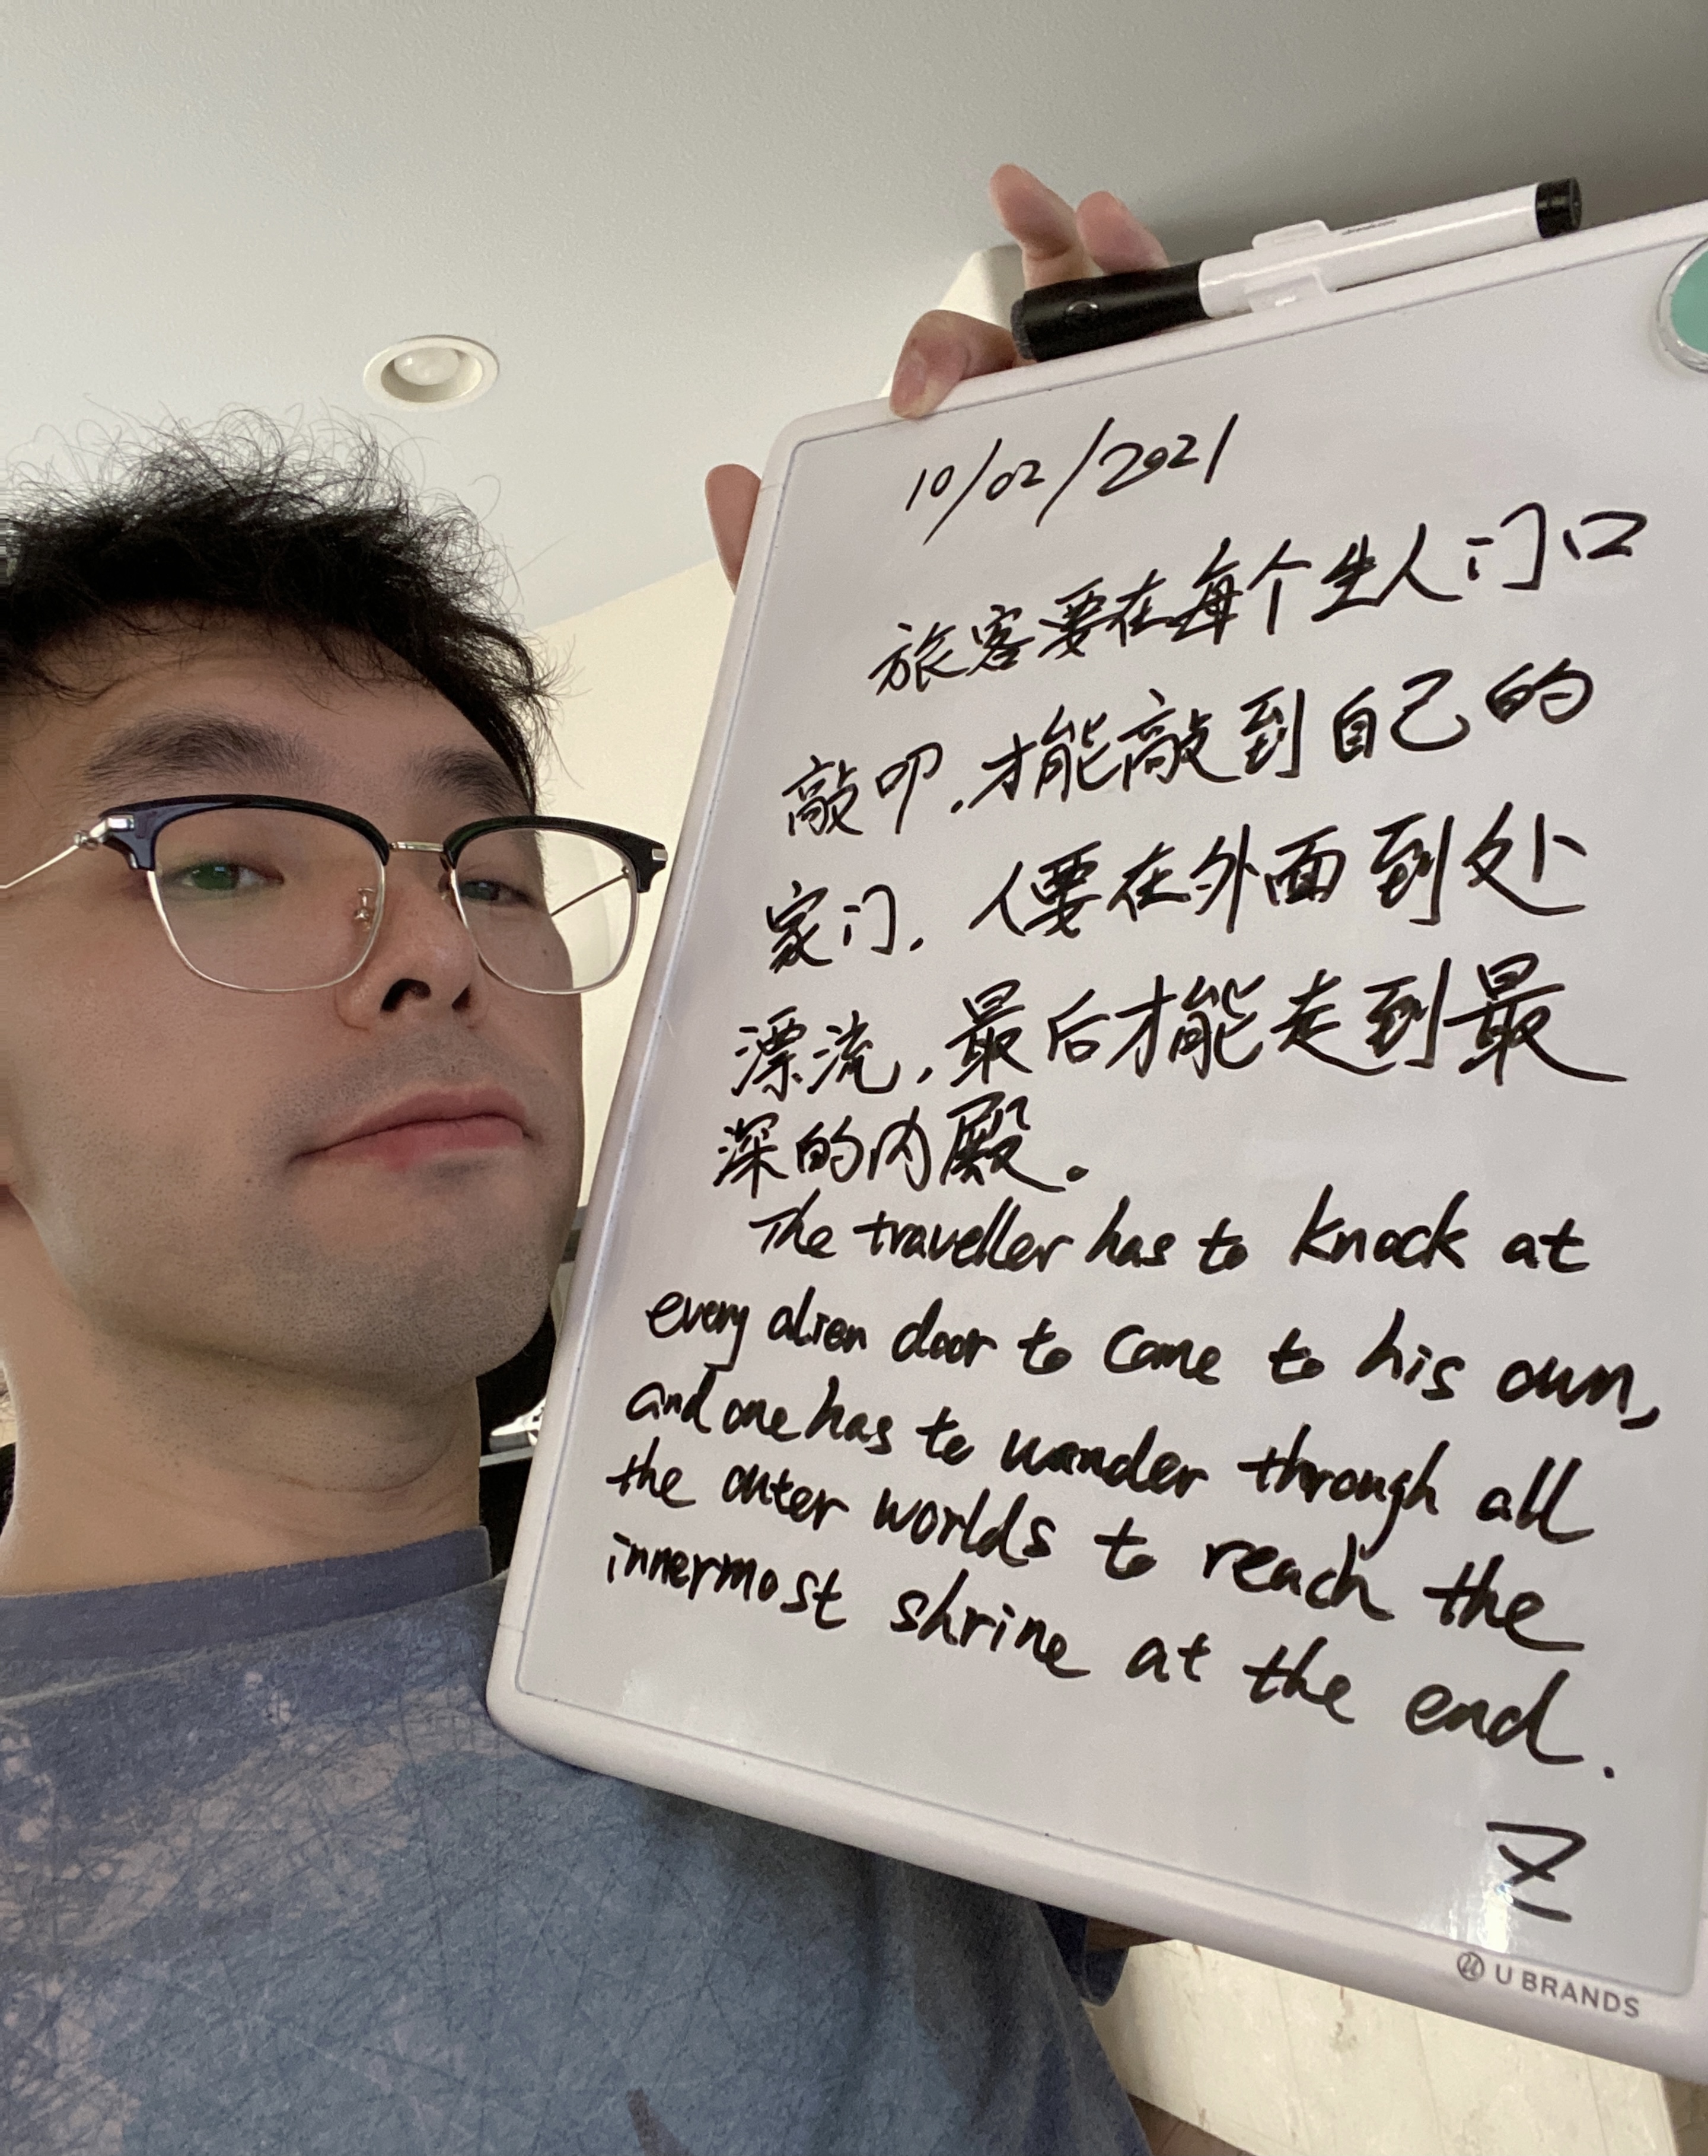 10/02/2021
旅客要在每个生人门口
敲叩,才能敲到自己的
家门,人要在外面到处
漂流,最后才能走到最
深的内殿。
The traveller has to knock at
every alien door to come to his own,
and one has to wander through all
the outer worlds to reach the
innermost shrine at the end.
Z
U BRANDS